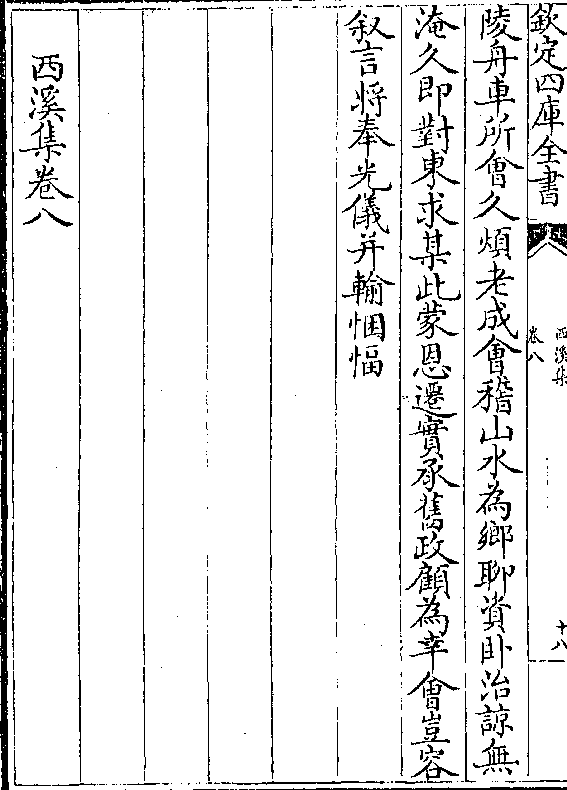 欽定四庫全書
西溪集
卷八
十八
陵舟車所會久煩老成會稽山水為鄉聊資卧治諒無
淹久即對東求某此蒙恩遷實承舊政顧為幸會豈容
叙言將奉光儀并輸悃愊
西溪集卷八